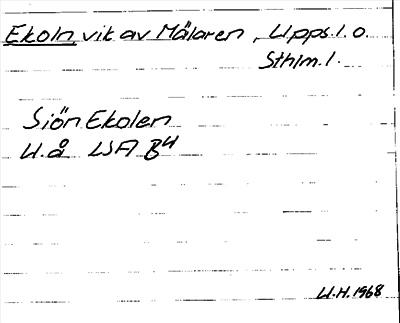 Ekoln vik av Mälaren, Upps.l. o.
Sthlm.l.
Siön Ekolen
U.å LSA B4
U.H. 1968